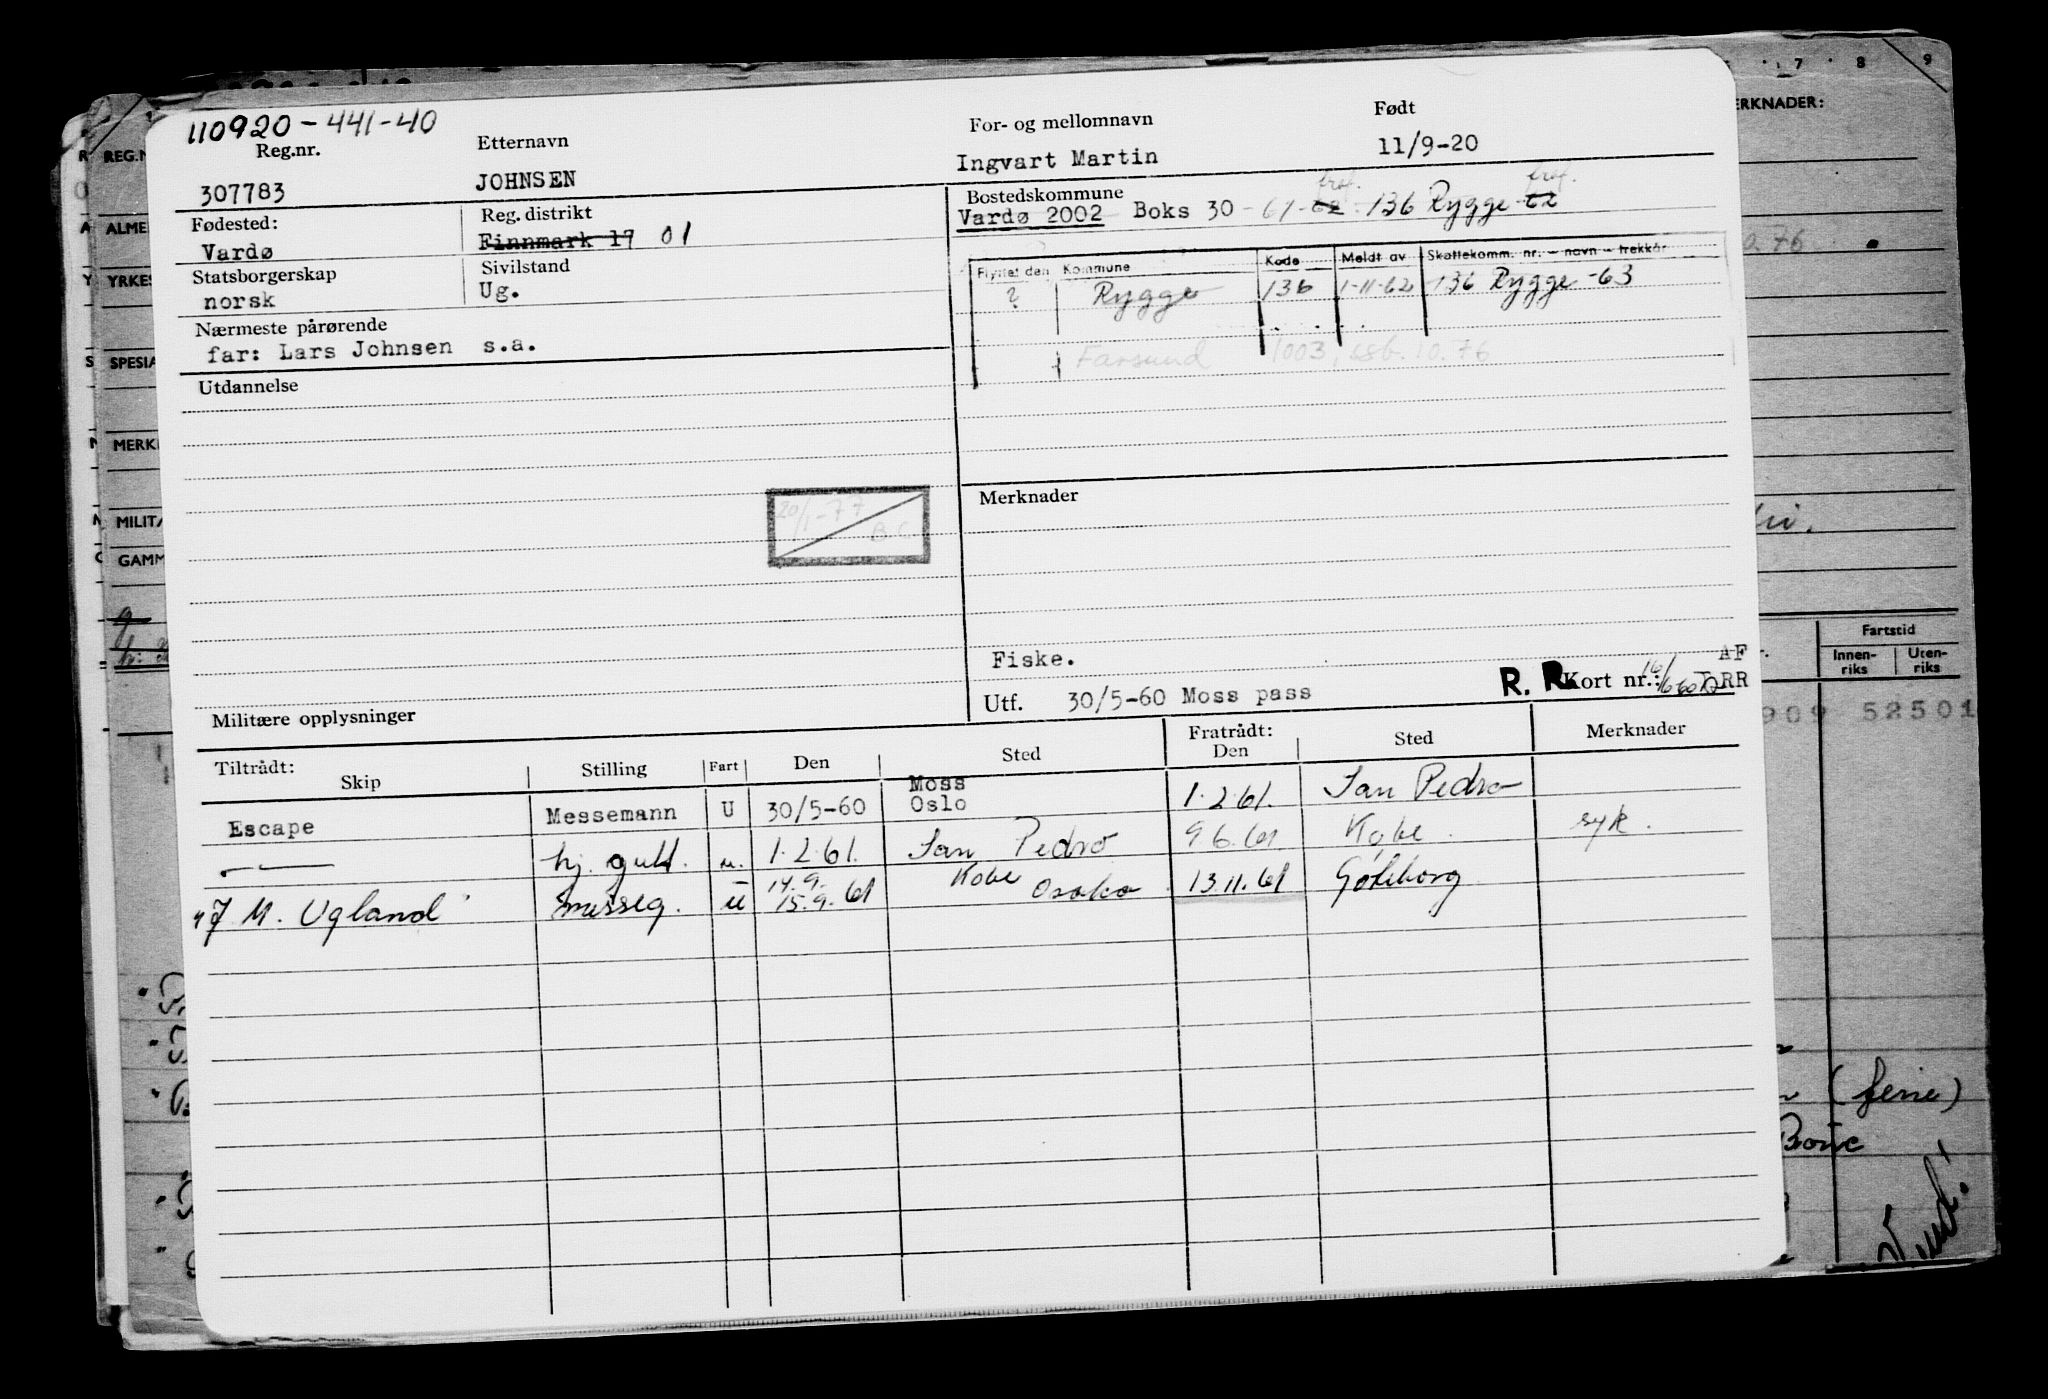 110920-441-40
Reg.nr. Etternavn For- og mellomnavn Født
307783 JOHNSEN Ingvart Martin 11/9-20
Fødested: Reg. distrikt Bostedskommune
Vardø Finnmark 17 01 Vardø 2002 Boks 30 - 61-62 136 Rygge 62
Statsborgerskap Sivilstand
norsk Ug.
Flyttet den Kommune Kode Meldt av Skattekomm. nr. - navn - trekkår
? Rygge 136 1-11-62 136 Rygge-63
Farsund 1003, ssb. 10.76
Nærmeste pårørende
far: Lars Johnsen s.a.
Utdannelse
20/1-77
B.C.
Merknader
Fiske.
AF
R. R. Kort nr.: RR
Utf. 30/5-60 Moss pass
Militære opplysninger
Tiltrådt: Fratrådt:
Skip Stilling Fart Den Sted Den Sted Merknader
Escape Messemann U 30/5-60 Moss Oslo 1.2.61. San Pedro
hj. gutt. u. 1.2.61. San Pedro 9.6.61 Kobe. syk.
M. Ugland messeg. u 14.9. 15.9.61 Kobe Osaka 13.11.61 Göteborg
REG.N
ALME
YRKES
SPESIA
MERK
MILIT
GAMM
7 8 9
ERKNADER:
Fartstid
Innen-riks Uten-riks
909 52501
(ferie)